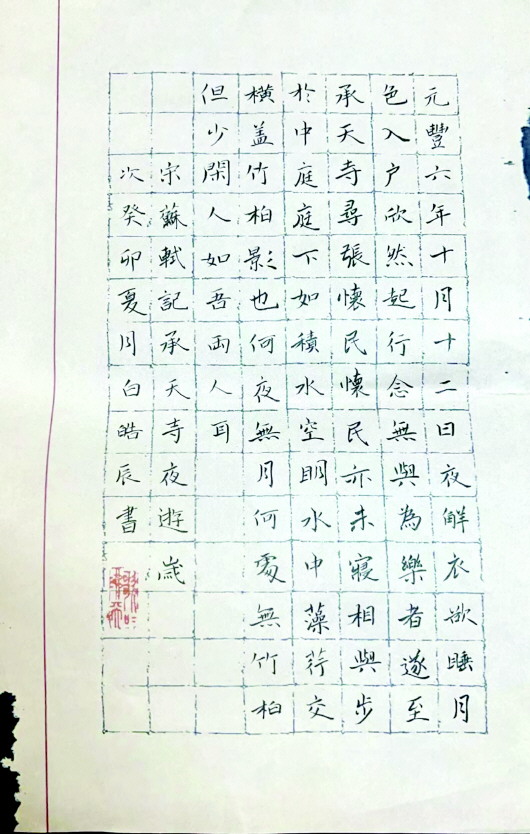 元豐六年十月十二日夜解衣欲睡月
色入户欣然起行念無與為樂者遂至
承天寺尋張懷民懷民亦未寢相與步
於中庭庭下如積水空明水中藻荇交
橫盖竹柏影也何夜無月何處無竹柏
但少閑人如吾兩人耳
宋蘇軾記承天寺夜遊歲
次癸卯夏月白皓辰書